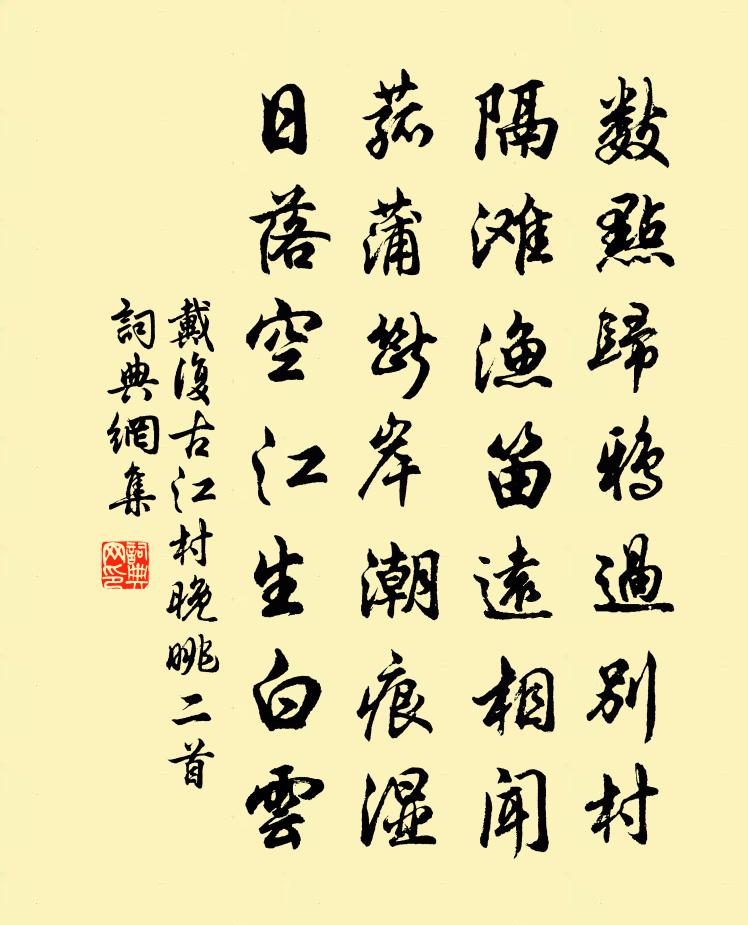 數點歸鴉過別村
隔滩漁笛遠相聞
菰蒲斷岸潮痕湿
日落空江生白雲
戴復古江村晚眺二首
詞典網集
詞典网印